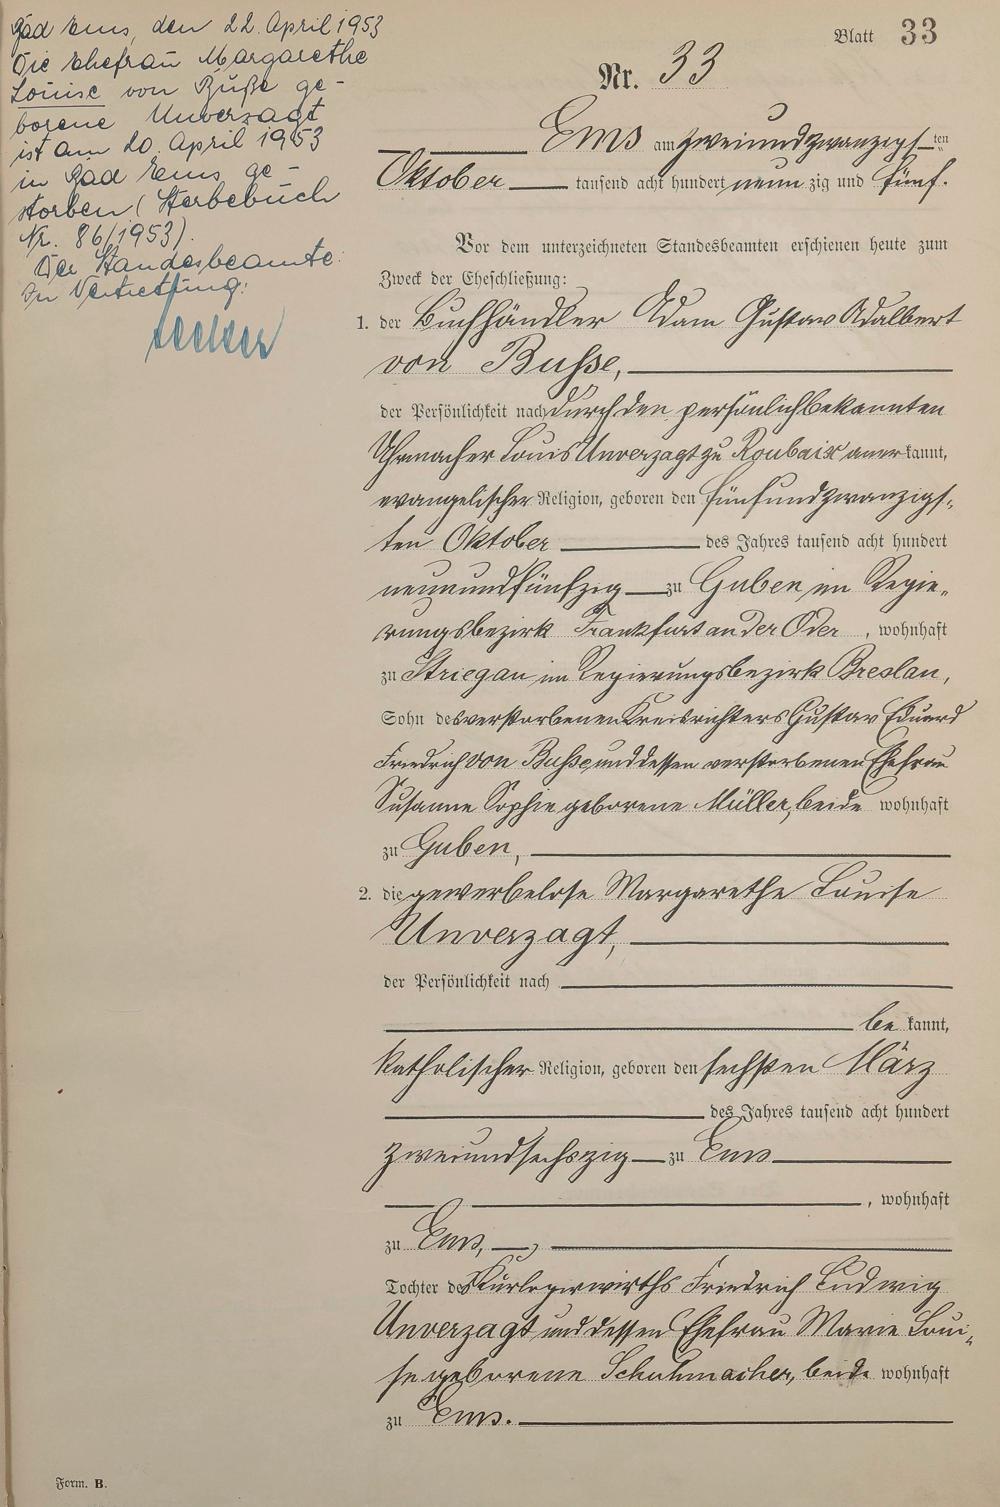 Bad Ems, den 22. April 1953
Die Ehefrau Margarethe
Louise von Buße ge-
borene Unverzagt
ist am 20. April 1953
in Bad Ems ge-
storben (Sterbebuch
Nr. 86/1953).
Der Standesbeamte:
In Vertretung:
Blatt 33
Nr. 33
Ems am zweiundzwanzigsten
Oktober tausend acht hundert neunzig und fünf.
Vor dem unterzeichneten Standesbeamten erschienen heute zum
Zweck der Eheschließung:
1. der Buchhändler Adam Gustav Adalbert
von Busse,
der Persönlichkeit nach durch den persönlich bekannten
Uhrmacher Louis Unverzagt zu Roubaix anerkannt,
evangelischer Religion, geboren den fünfundzwanzigs-
ten Oktober des Jahres tausend acht hundert
neunundfünfzig zu Guben im Regie-
rungsbezirk Frankfurt an der Oder, wohnhaft
zu Striegau im Regierungsbezirk Breslau,
Sohn des verstorbenen Kreisrichters Gustav Eduard
Friedrich von Busse und dessen verstorbenen Ehefrau
Susanne Sophie geborene Müller, beide wohnhaft
zu Guben,
2. die gewerbelose Margarethe Louise
Unverzagt,
der Persönlichkeit nach
bekannt,
katholischer Religion, geboren den sechsten März
des Jahres tausend acht hundert
zweiundsechszig zu Ems
, wohnhaft
zu Ems,
Tochter des Kurlogirwirths Friedrich Ludwig
Unverzagt und dessen Ehefrau Marie Loui-
se geborene Schuhmacher, beide wohnhaft
zu Ems.
Form. B.